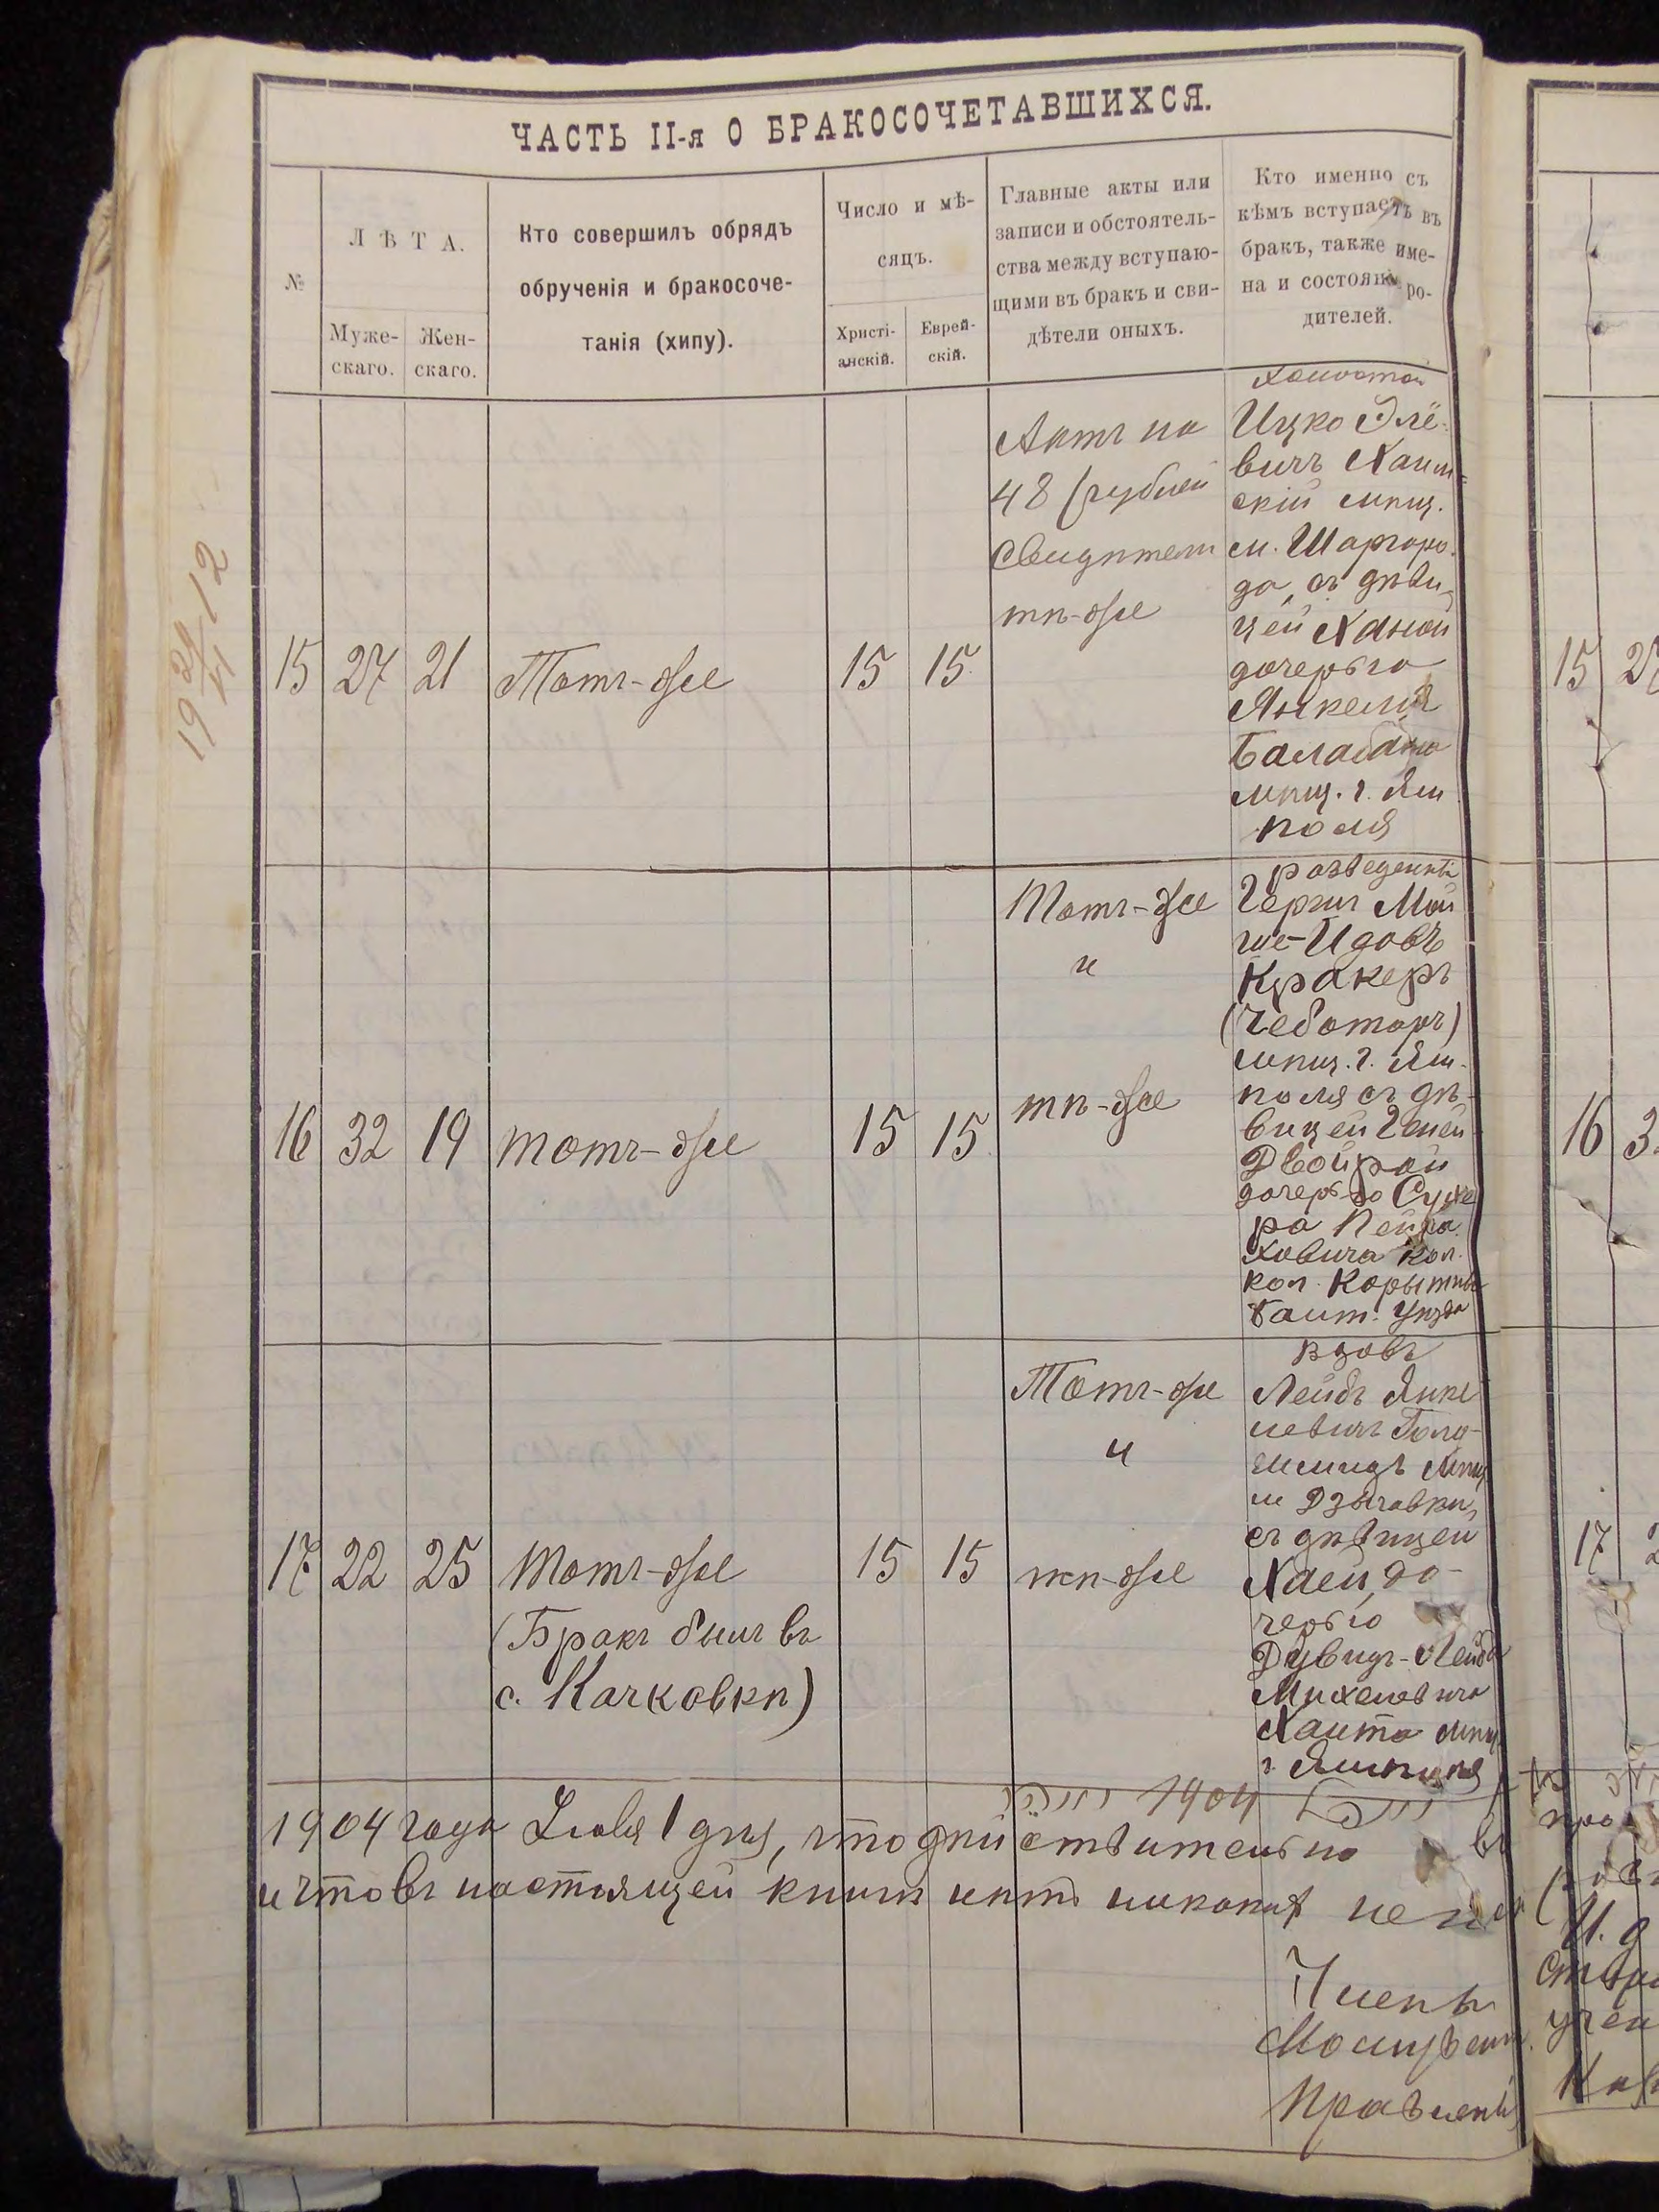 ЧАСТЬ II-я О БРАКОСОЧЕТАВШИХСЯ.
№
ЛѢТА.
Муже-
скаго.
Жен-
скаго.
Кто совершилъ обрядъ
обрученія и бракосоче-
танія (хипу).
Число и мѣ-
сяцъ.
Христі-
анскій.
Еврей-
скій.
Главные акты или
записи и обстоятель-
ства между вступаю-
щими въ бракъ и сви-
дѣтели оныхъ.
Кто именно съ
кѣмъ вступаетъ въ
бракъ, также име-
на и состояніе ро-
дителей.
15
27
21
Тотъ-же
15
15
Актъ на
48 рублей
Свидѣтели
тѣ-же
холостой
Ицко Элё-
вичъ Хаим-
скій мѣщ.
м. Шаргоро-
да, съ дѣви-
цей Ханой
дочерью
Янкеля
Балабана
мѣщ. г. Ям
поля
16
32
19
тотъ-же
15
15
Тотъ-же
и
тѣ-же
разведенный
Гершъ Мой
ше-Идовъ
Кракеръ
(Чеботарь)
мѣщ. г. Ям-
поля съ дѣ-
вицей Геней
Двойрой
дочерью Сухе
ра Пейса
ховича кол.
кол.
Балт. уѣзда
17
22
25
Тотъ-же
(Бракъ былъ въ
с. Качковкѣ)
15
15
Тотъ-же
и
тѣ-же
вдовъ
Лейбъ Янке
левичъ Голд-
шмидъ мѣщ
м Дзыговки,
съ дѣвицей
Хаей до-
черью
Дувидъ-Лейба
Михелевича
Хаита мѣщ
г. Ямполя
1904 года Іюля 1 дня, что дѣйствительно въ
и что въ настоящей книгѣ нѣтъ никакихъ
Члены
Правленія
1904
19 21/VI 12
15
16
17